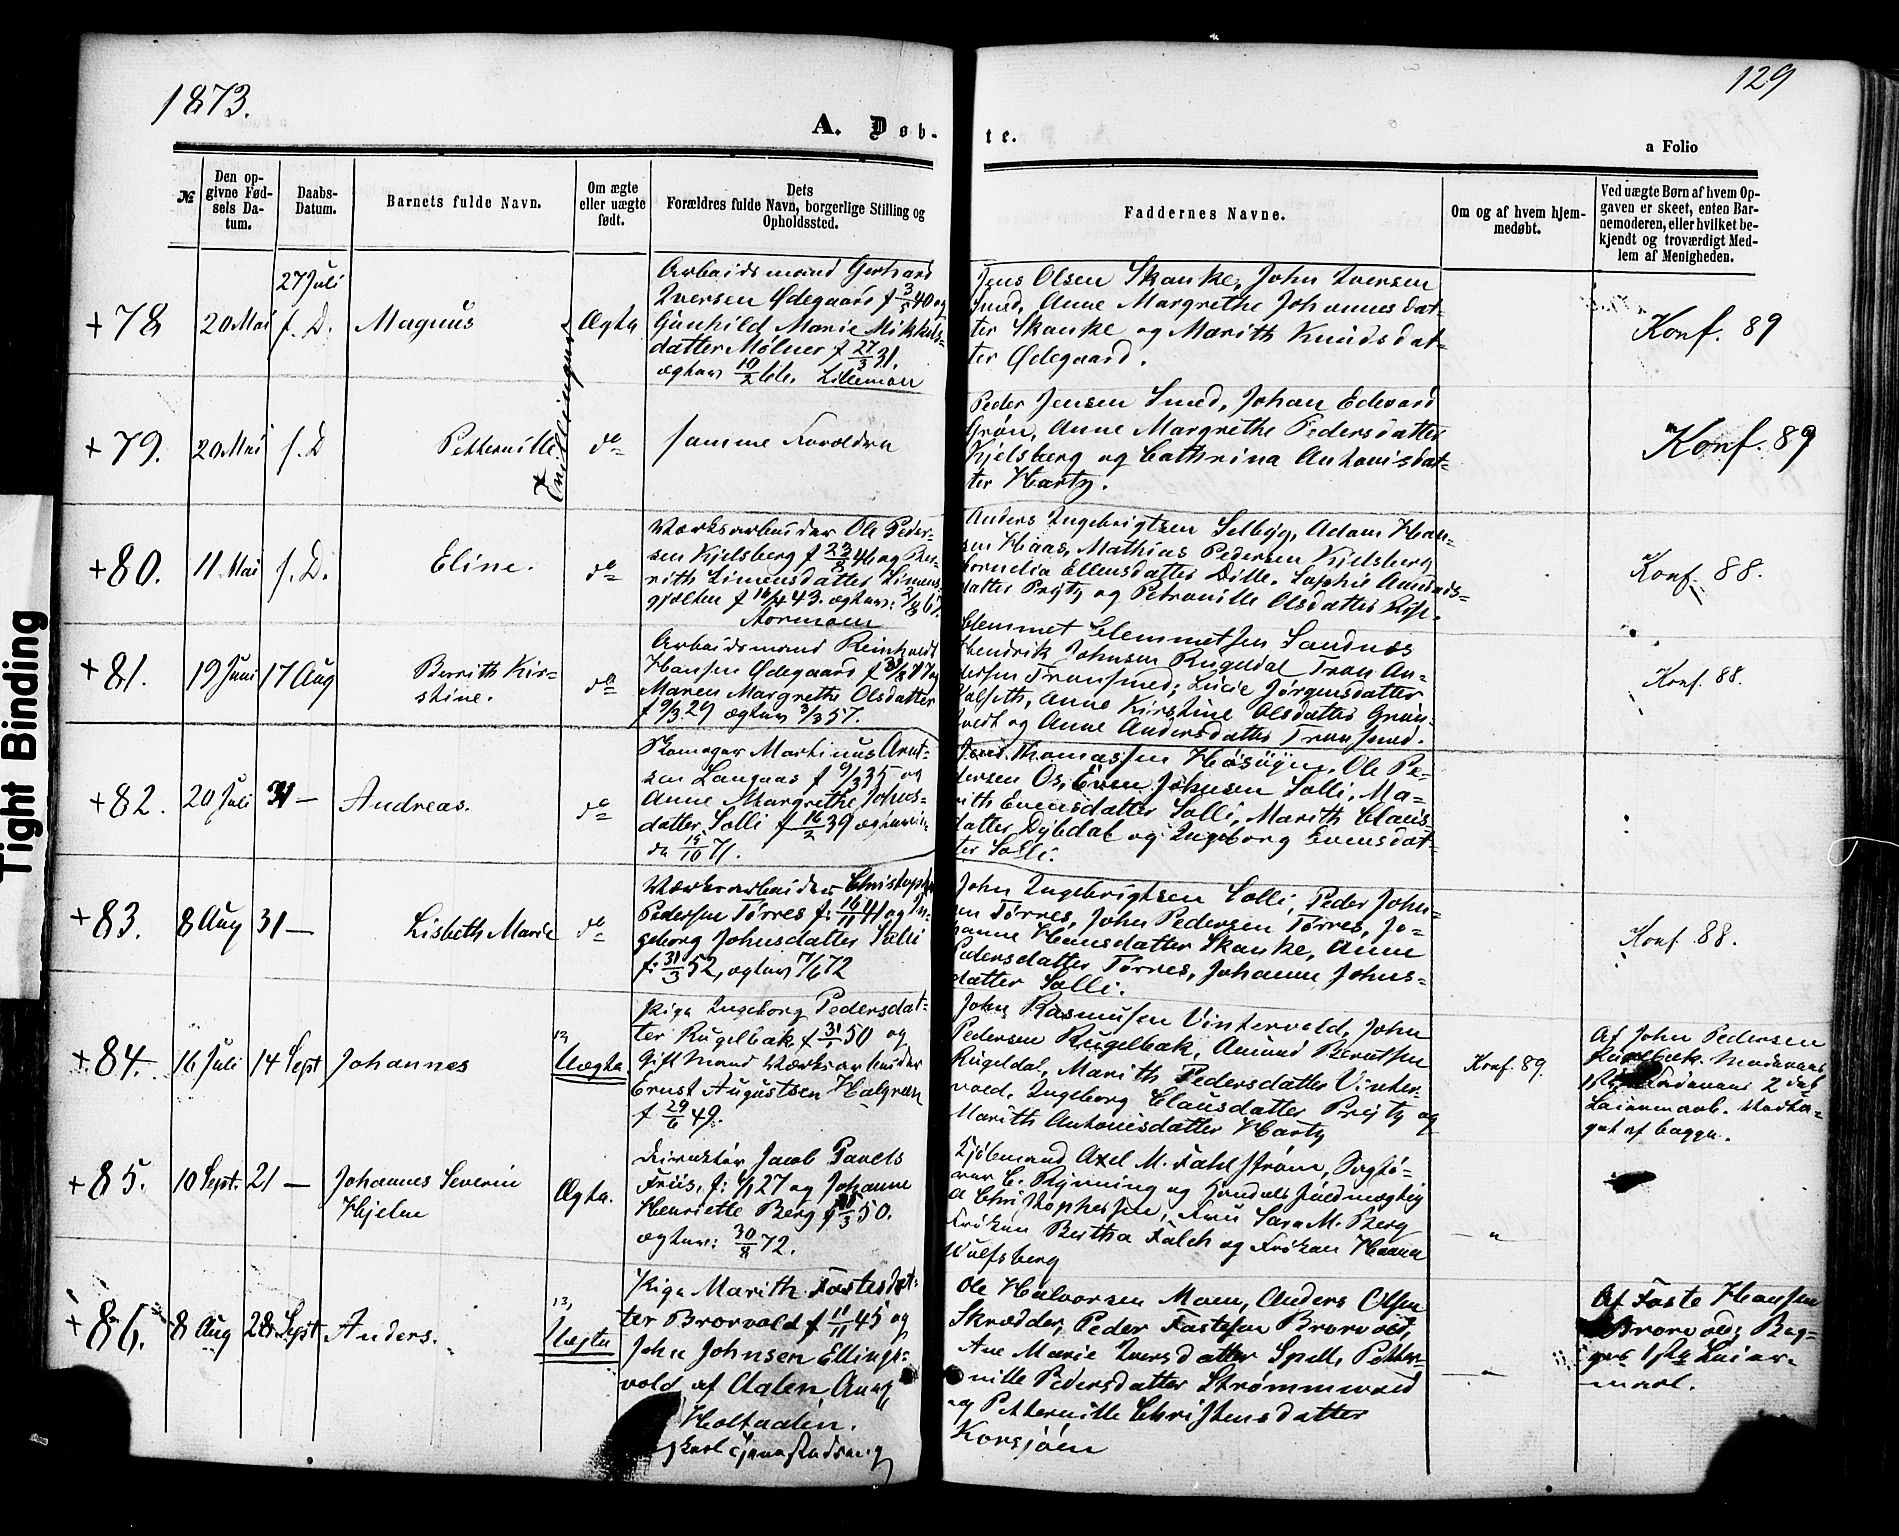 1873.
129
A. Døb-
te.
a Folio
№
Den op-
givne Fød-
sels Da-
tum.
Daabs-
Datum.
Barnets fulde Navn.
Om ægte
eller uægte
født.
Dets
Forældres fulde Navn, borgerlige Stilling og
Opholdssted.
Faddernes Navne.
Om og af hvem hjem-
medøbt.
Ved uægte Børn af hvem Op-
gaven er skeet, enten Bar-
nemoderen, eller hvilket be-
kjendt og troværdigt Med-
lem af Menigheden.
+78
20 Mai
27 Juli
f. D.
Magnus
Tvillinger
Ægte
Arbeidsmand Gerhard
Iversen Ødegaard f 3/5 40 og
Gunhild Marie Mikkels-
datter Mølner f 27/3 31.
ægtev 10/2 66. Lillemoen
Jens Olsen Skanke, John Iversen
Smed, Anne Margrethe Johannesdat-
ter Skanke og Marith Knudsdat-
ter Ødegaard.
Konf. 89
+79.
20 Mai
f. D
Petternille
do
samme Forældre
Peder Jensen Smed, Johan Edvard
Grøn, Anne Margrethe Pedersdatter
Kjelsberg og Cathrina Antonisdat-
ter Harty.
Konf. 89
+80.
11 Mai
f. D.
Eline.
do
Værksarbeider Ole Peder-
sen Kjelsberg f 23/8 46 og Be-
rith Simensdatter Simens-
gjelten f 16/4 43. ægtev: 67.
Normoen
Anders Ingebrigtsen Selbyg, Adam Han-
sen Haas, Mathias Pedersen Kjelsberg
Cornelia Ellensdatter Dille. Sophie Amunds-
datter Prytz og Petronille Olsdatter
Konf. 88.
+81.
19 Juni
17 Aug
Berrith Kir-
stine.
do
Arbeidsmand Reinholdt
Hansen Ødegaard f
Maren Margrethe Olsdatter
f 9/3 29 ægtev 3/3 57.
Clemmet Clemmetsen Sandnæs
Hendrik Johnsen Rugldal Tron An-
dersen Tronsmed; Lucie Jørgensdatter
Galseth, Anne Kirstine Olsdatter Grun-
tvedt og Anne Andersdatter Tronsmed.
Konf. 88.
+82.
20 Juli
31 —
Andreas.
do
Skomager Martinus Arnt-
sen Langaas f 9/3 35 og
Anne Margrethe Johns-
datter Solli f 16/2 39 ægtevi-
de 15/10 71.
Thomassen Høsøyen, Ole Pe-
dersen Os, Even Johnsen Solli, Ma-
rith Evensdatter Solli, Marith Claus
datter Dybdal og Ingeborg Evensdat-
ter Solli.
+83.
8 Aug
31 —
Lisbeth Marie
do
Værksarbeider Christopher
Pedersen Tørres f: 16/11 41 og In-
geborg Johnsdatter Solli
f: 31/3 52, ægtev 17/6 72
John Ingebrigtsen Solli, Peder John-
sen Tørres, John Pedersen Tørres, Jo-
hanne Hansdatter Skanke, Anne
Pedersdatter Tørres, Johanne Johns-
datter Solli.
Konf. 88.
+84.
16 Juli
14 Sept
Johannes
13,
Uægte
Pige Ingeborg Pedersdat-
ter Rugelbak f 31/1 50 og
Gift Mand Værksarbeider
Ernst Augustsen Halgreen
f 29/6 49.
John Rasmussen Vintervold, John
Pedersen Rugelbak, Amund Berntsen
Rugeldal, Marith Pedersdatter Vinter-
vold, Ingeborg Clausdatter Prytz og
Marith Antonisdatter Harty
Konf. 89.
Af John Pedersen
Rugelbak. Moderens
1ste Faderens 2 det
Leiermaal. Modta-
get af begge.
+85.
10 Sept.
21 —
Johannes Severin
Hjelm
Ægte.
Direktør Jacob Pavels
Friis, f: 6/1 27 og Johanne
Henriette Berg f 50.
ægtev: 30/8 72.
Kjøbmand Axel M. Fahlstrøm, Sogfø-
rer C. Rynning og Handelsfuldmægtig
A Christophersen, Fru Sara M. Berg
Frøken Bertha Falch og Frøken Hanna
Wulfsberg
— " —
+86.
8 Aug
28 Sept
Anders.
13,
Uægte
Pige Marith Fastesdat-
ter Brorvold f 11/11 45 og
John Johnsen Ellings-
vold af Aalen, Anx
Holtaalen.
Ole Halvorsen Moen, Anders Olsen
Skrædder, Peder Fastesen Brorvold,
Ane Marie Iversdatter Spell, Petter-
nille Pedersdatter Strømmevold
og Petternille Christensdatter
Korssjøen
— " —
Af Faste Hansen
Brorvold; Beg-
ges 1ste Leier-
maal.
Tight Binding